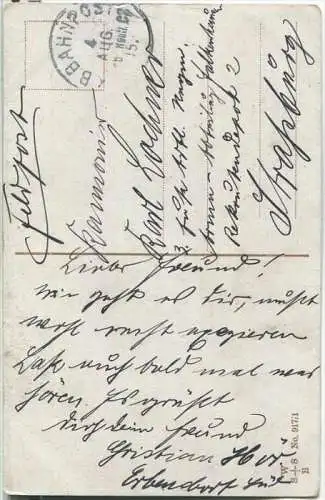 BAHNPOST
4
AUG.
15.
Feldpost
Kanonier
Karl Lochner
Rekrutendepot 2
Straßburg
Lieber Freund!
Wie geht es dir, mußt
wohl recht exerzieren
Laß auch bald mal was
hören. Es grüßt
dich dein Freund
Christian
Erbendorf
S+S No. 917/1
B